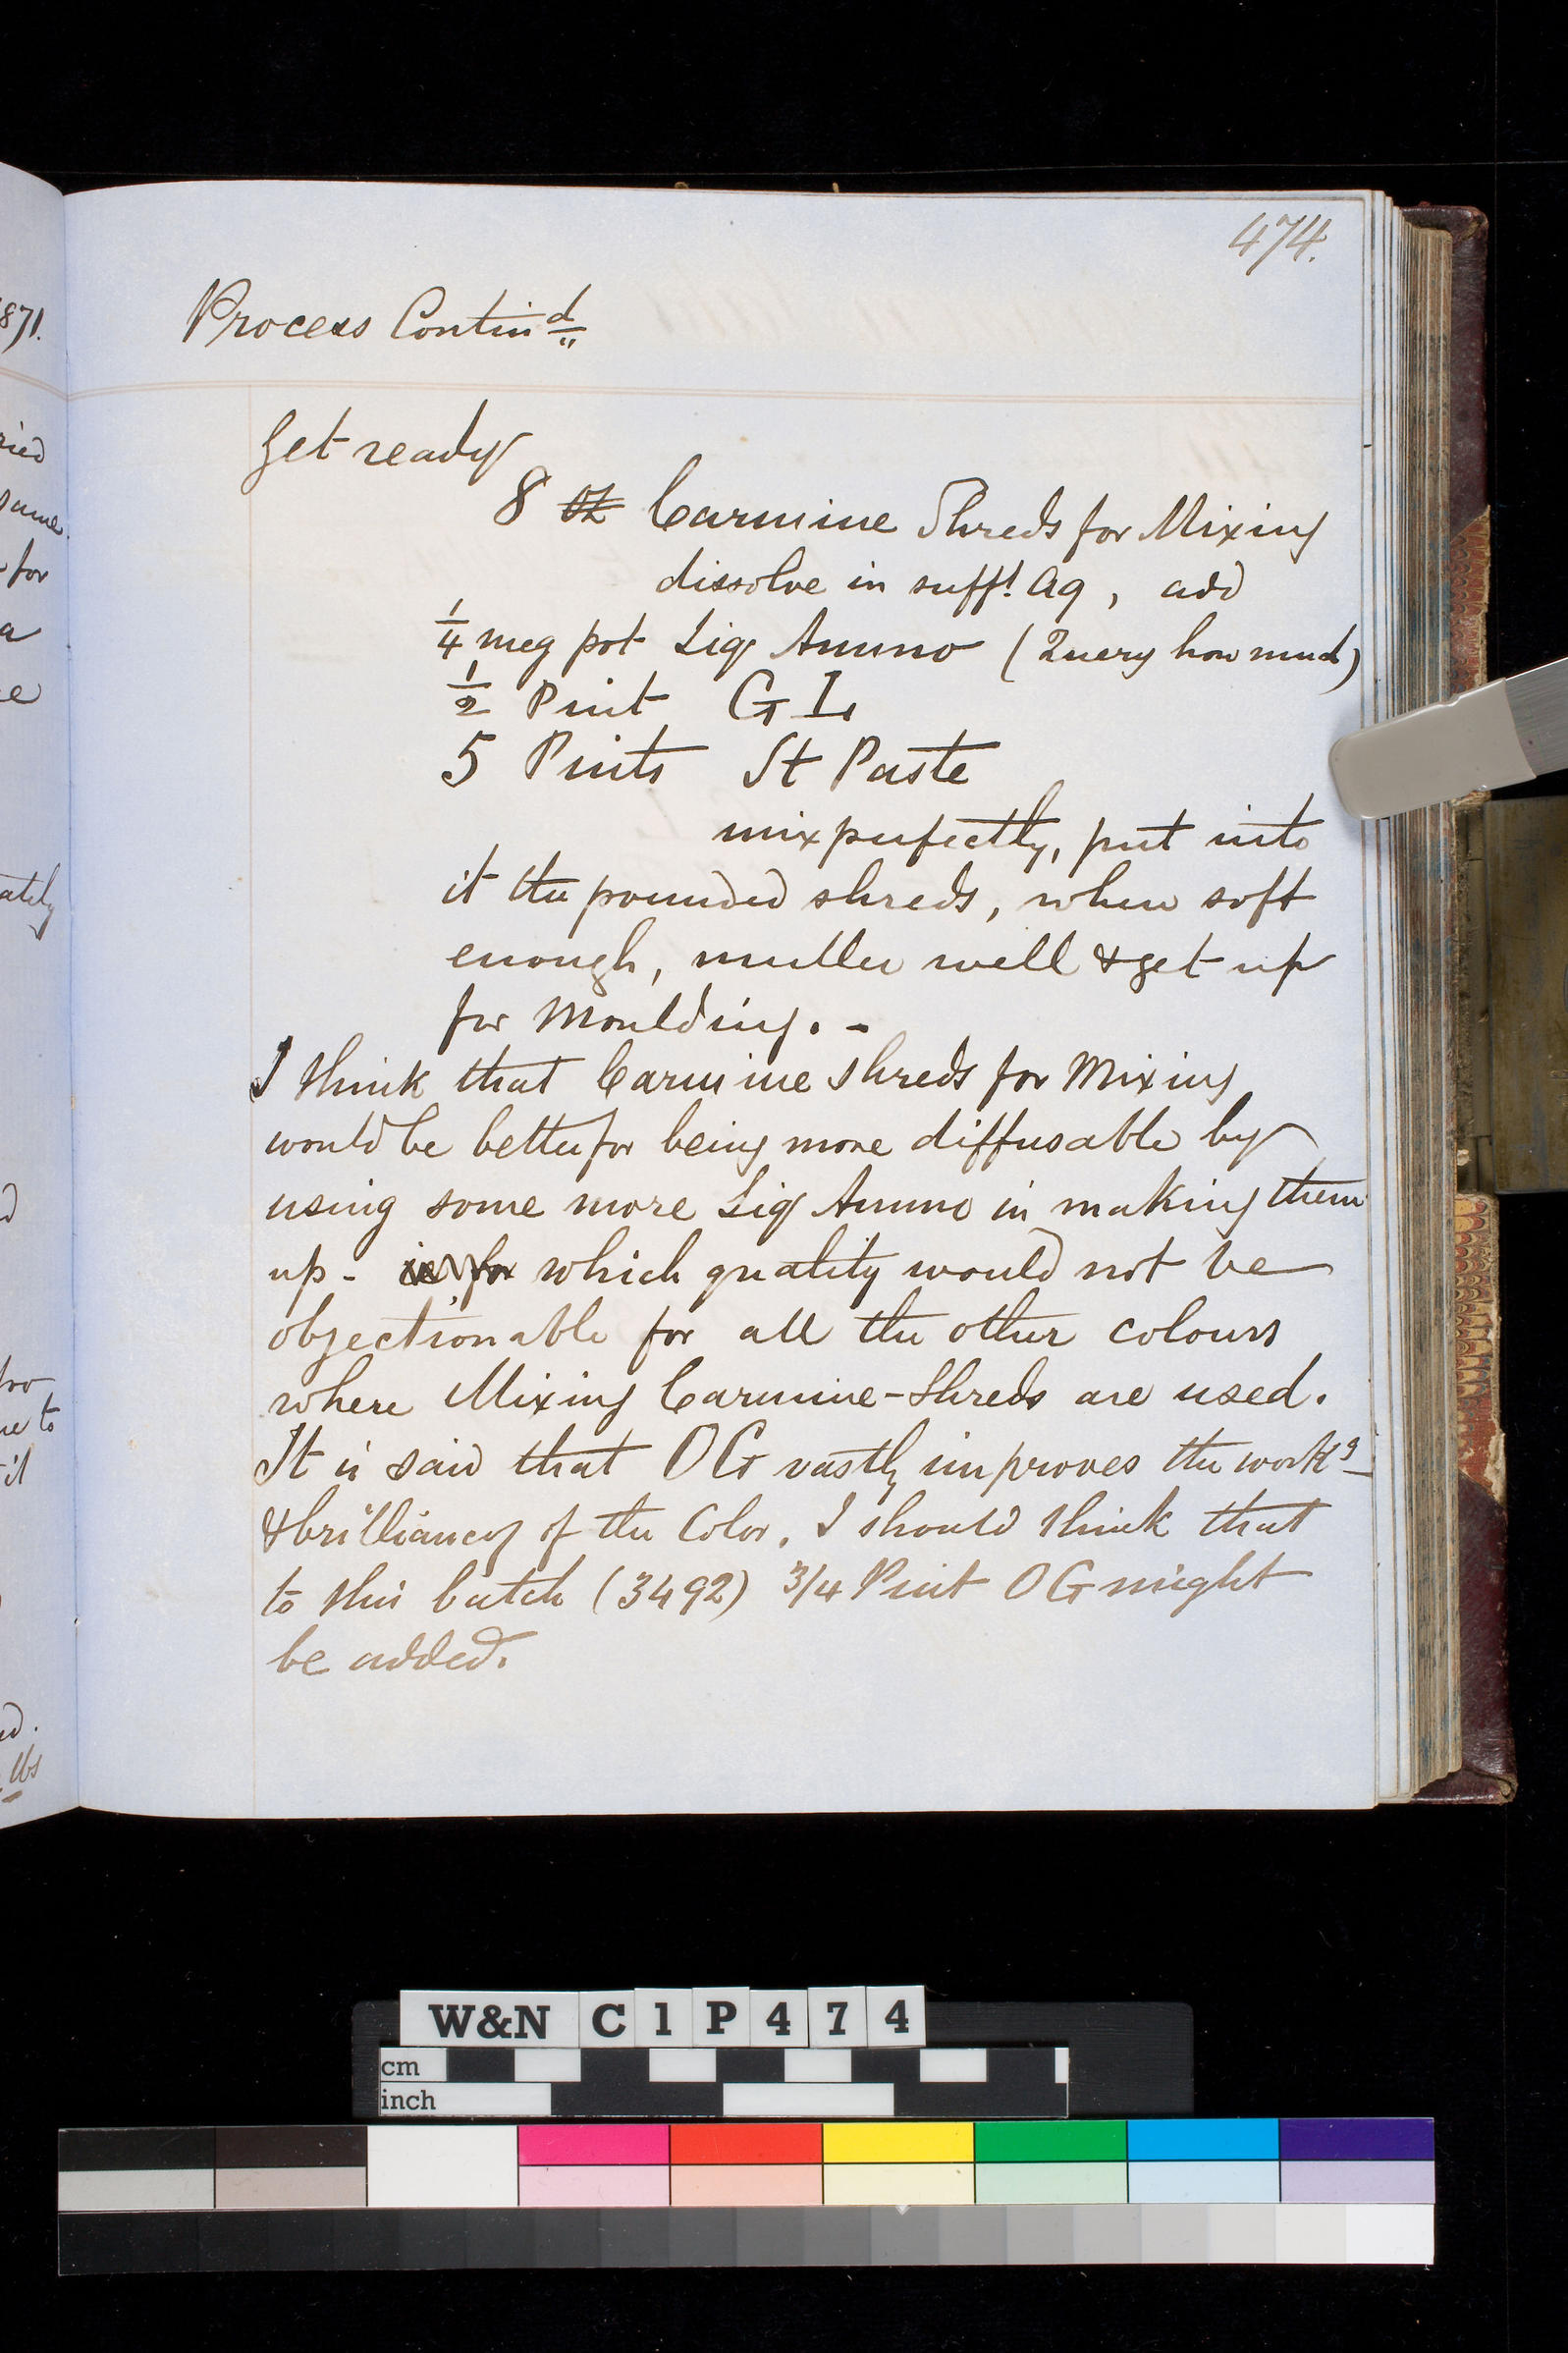 474.
Process Contin^d
871.
Get ready
ried
8 oz Carmine Shreds for Mixing
same
dissolve in suff^t Aq, add
for
1/4 meg pot Liq Ammo (Query how much)
a
1/2 Pint G L
5 Pints St Paste
mix perfectly, put into
it the pounded shreds, when soft
ately
enough, muller well & get up
for Moulding. -
I think that Carmine Shreds for Mixing
would be better for being more diffusable by
using some more Liq Ammo in making them
up - which quality would not be
objectionable for all the other colours
where Mixing Carmine-Shreds are used.
it
It is said that OG vastly improves the work^g
& brilliancy of the Color. I should think that
to this batch (3492) 3/4 Pint OG might
be added.
lbs
W&N C1P474
cm
inch